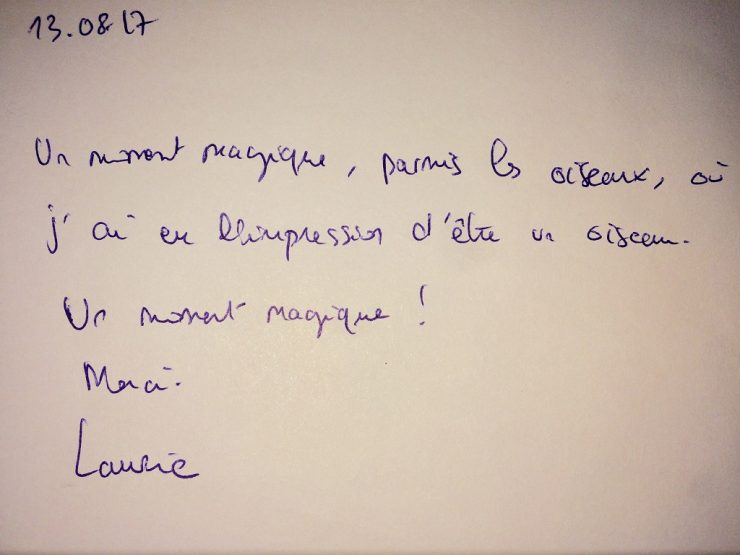 13.08 17
Un moment magique, parmis les oiseaux, où
j'ai eu l'impression d'être un oiseau.
Un moment magique !
Merci.
Laurie